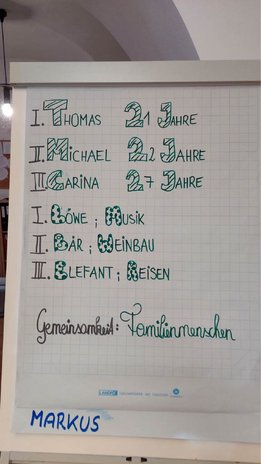 I. THOMAS 21 JAHRE
II. MICHAEL 22 JAHRE
III CARINA 27 JAHRE
I. LÖWE ; MUSIK
II. BÄR ; WEINBAU
III. ELEFANT ; REISEN
Gemeinsamkeit: Familienmenschen
MARKUS